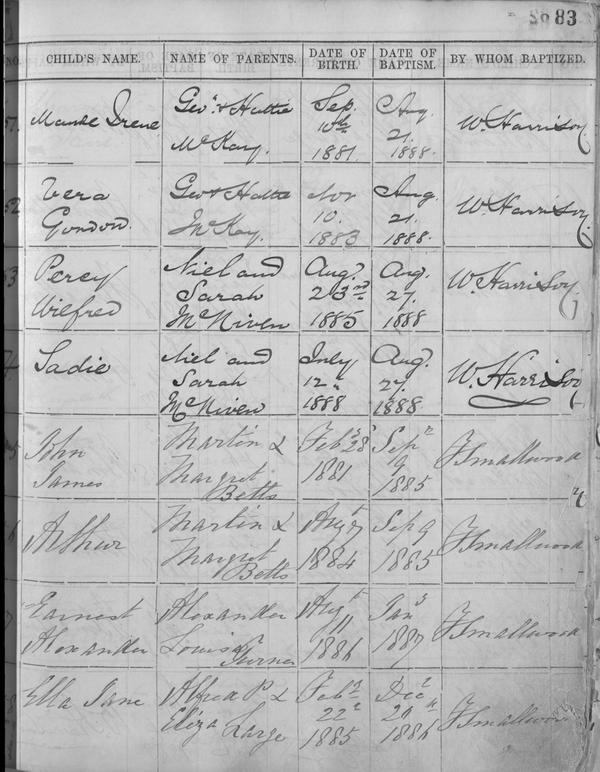 83
NO.
CHILD'S NAME.
NAME OF PARENTS.
DATE OF BIRTH.
DATE OF BAPTISM.
BY WHOM BAPTIZED.
Maude Irene
Geo. & Hattie
McKay.
Sep.
10th
1881.
Aug.
21.
1888.
W. Harrison
Vera
Gordon.
Geo & Hattie
McKay.
Nov
10.
1883
Aug.
21.
1888.
W. Harrison
Percy
Wilfred
Niel and
Sarah
McNiven
Aug.
23rd
1885
Aug.
27.
1888
W. Harrison
Sadie
Niel and
Sarah
McNiven
July
12
1888
Aug.
27.
1888.
W. Harrison
John
James
Martin &
Margret
Betts
Feb 28
1881
Sep
9
1885
J Smallwood
Arthur
Martin &
Margret
Betts
Aug 7
1884
Sep 9
1885
J Smallwood
Earnest
Alexander
Alexander
Louisa
Turner
Aug
11
1886
Jan
1887
J Smallwood
Ella Jane
Alfred P &
Eliza Large
Feb
22
1885
Dec
20
1886
J Smallwood